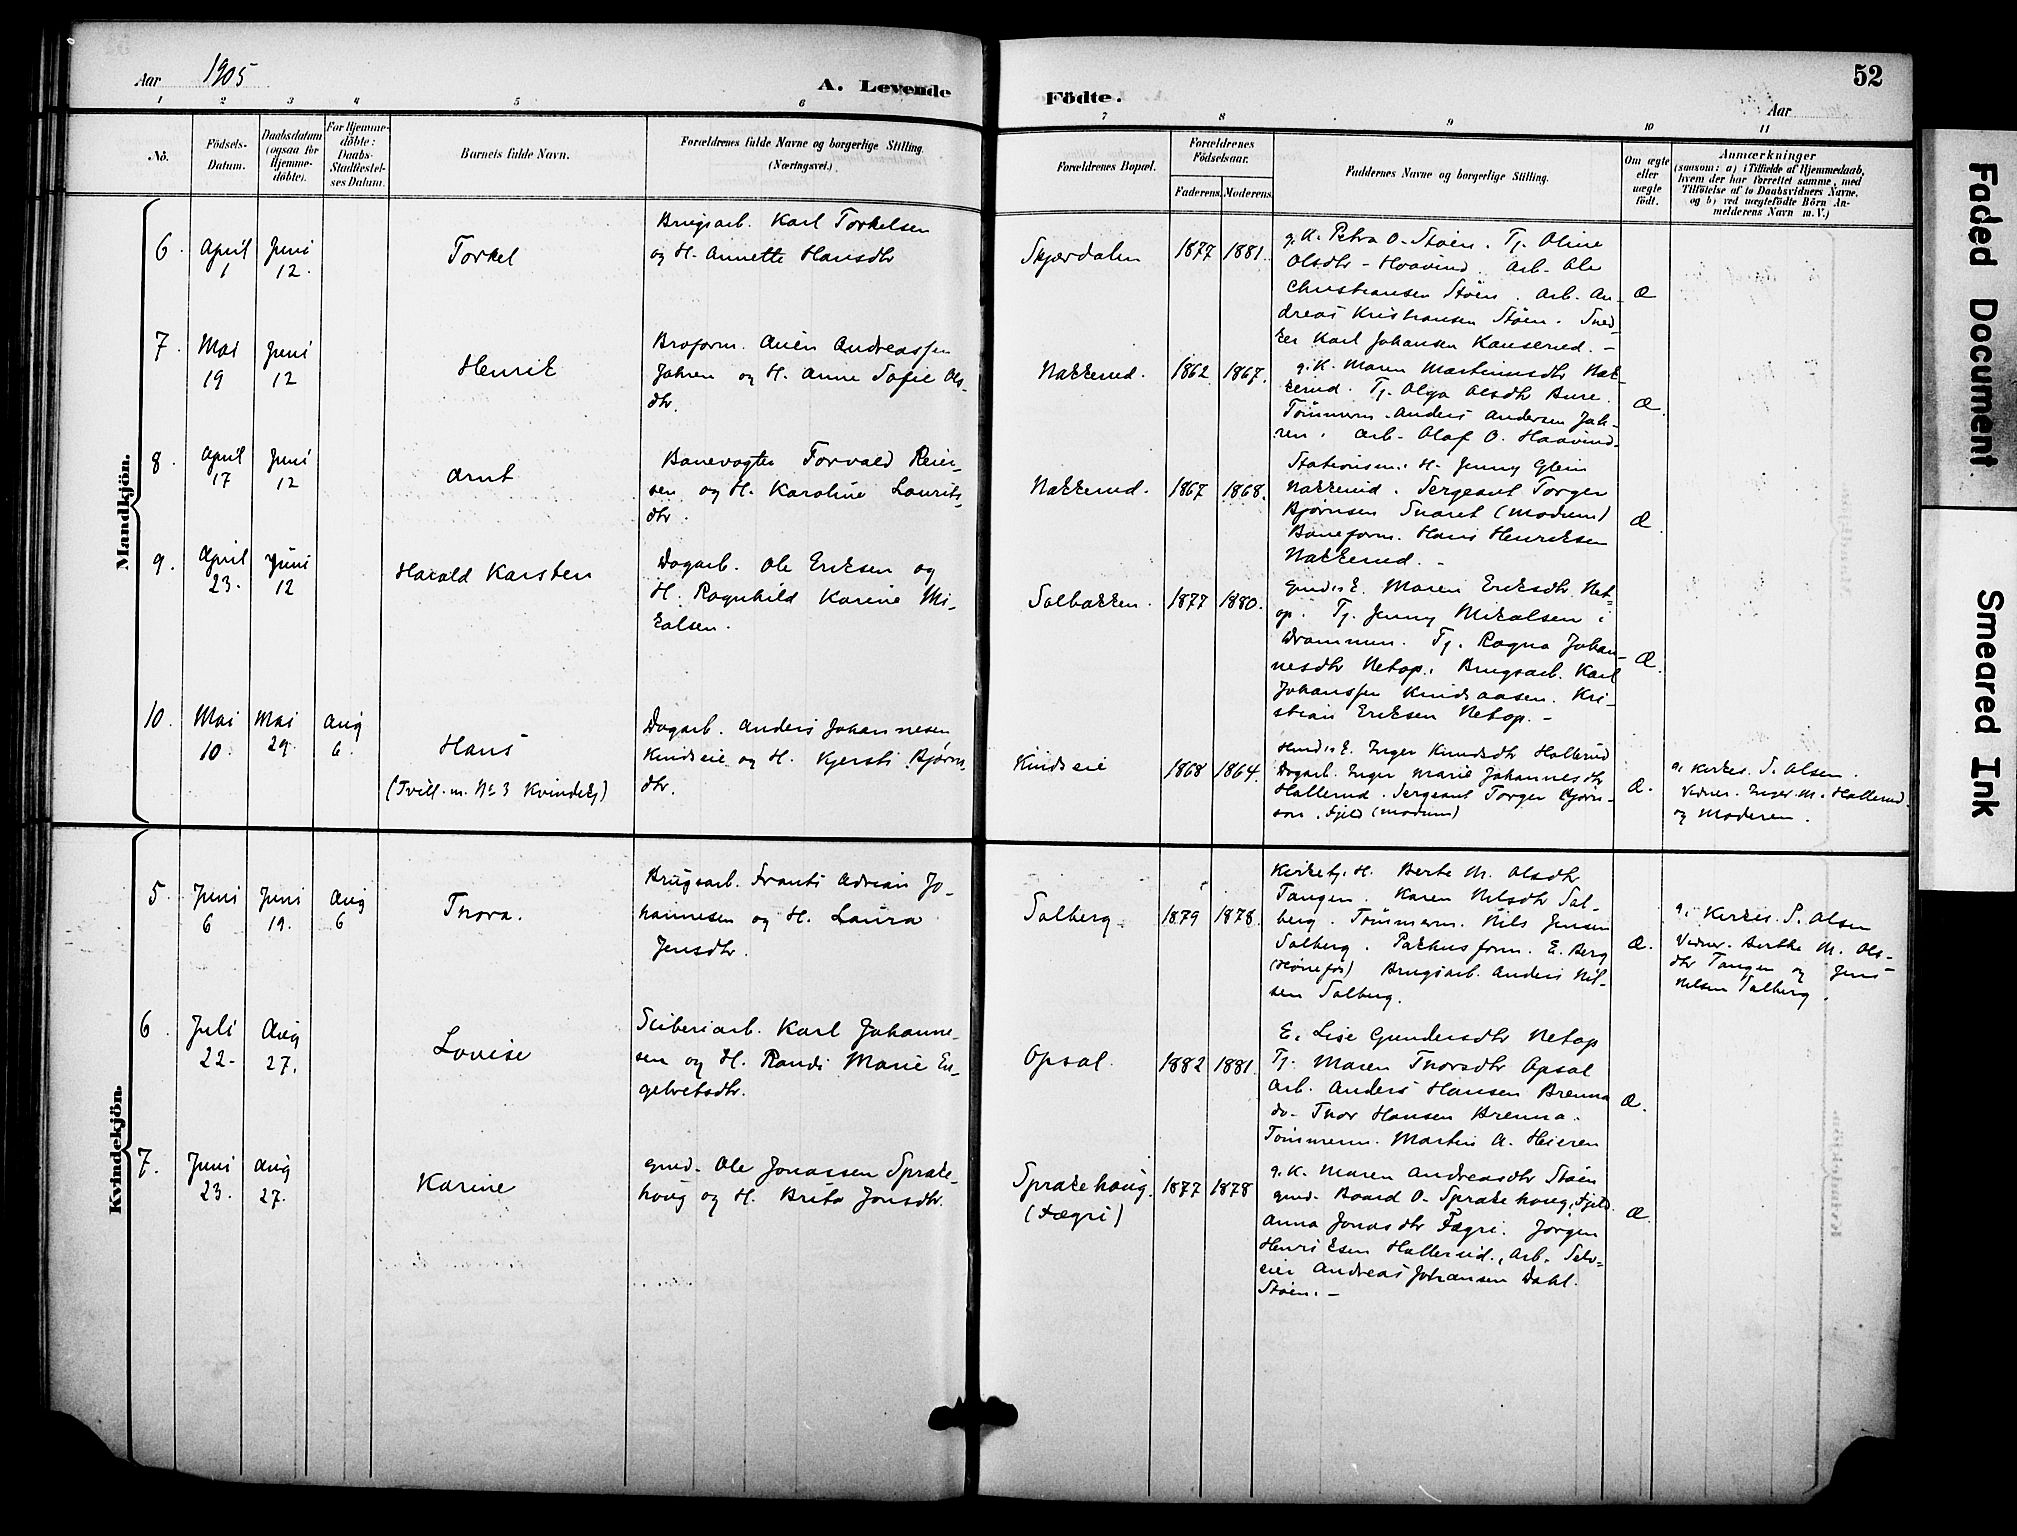 Aar 1905
A. Levende
Födte.
Aar
52
1 2 3 4 5 6 7 8 9 10 11
No.
Födsels-
Datum.
Daabsdatum
(ogsaa for
Hjemme-
döbte).
For Hjemme-
döbte:
Daabs-
Stadfæstel-
ses Datum.
Barnets fulde Navn.
Forældrenes fulde Navne og borgerlige Stilling.
(Næringsvei.)
Forældrenes Bopæl.
Forældrenes
Födselsaar.
Faderens. Moderens.
Faddernes Navne og borgerlige Stilling.
Om ægte
eller
uægte
født.
Anmærkninger
(saasom: a) i Tilfælde af Hjemmedaab,
hvem der har forrettet samme, med
Tilföielse af to Daabsvidners Navne,
og b) ved uægtefödte Börn An-
melderens Navn m. V.)
Mandkjön.
6. April 1 Juni 12.
Torkel
Brugsarb. Karl Torkelsen
og H. Annette Hansdtr
Skjærdalen 1877 1881.
g. K. Petra O. Støen. Tj. Oline
Olsdtr - Haavind. Arb. Ole
Christiansen Støen. Arb. An-
dreas Kristiansen Støen. Sned-
ker Karl Johansen Kauserud. -
Æ
7. Mai 19 Juni 12
Henrik
Broform. Auen Andreassen
Jahren og H. Anne Sofie Ols-
dtr.
Nakkerud. 1862 1867.
g. K. Maren Martinusdtr Nak-
kerud. Tj. Olga Olsdtr Bure.
Tømmerm. Anders Andersen Jah-
ren. Arb. Olaf O. Haavind.
Æ.
8. April 17 Juni 12
Arnt
Banevogter Torvald Reier-
sen og H. Karoline Laurits-
dtr.
Nakkerud. 1867 1868.
Stationsm. H. Jenny Glein
Nakkerud. Sergeant Torger
Bjørnsen Snaret (Modum)
Baneform. Hans Henriksen
Nakkerud. -
Æ
9. April 23. Juni 12
Harald Karsten
Dagarb. Ole Eriksen og
H. Ragnhild Karine Mi-
kalsen.
Solbakken. 1877 1880.
Gmd.s E. Maren Eriksdtr Net-
op. Tj. Jenny Mikalsen i
Drammen. Tj. Ragna Johan-
nesdtr Netop. Brugsarb. Karl
Johanssen Knudsaasen. Kri-
stian Eriksen Netop. -
Æ.
10. Mai 10. Mai 29. Aug 6.
Hans
(Tvill. m. No 3 Kvindekj)
Dagarb. Anders Johannesen
Kindseie og H. Kjersti Bjørns-
dtr.
Kindseie 1868 1864.
Inger Knudsdtr Hallerud
Dagarb. Inger Marie Johannesdtr
Hallerud. Sergeant Torger Bjørn-
son. Fjeld (Modum)
Æ.
g. Kirkes. S. Olsen.
Vidner. Inger M. Hallerud
og Moderen.
Kvindekjön.
5. Juni 6 Juni 19. Aug 6
Thora.
Brugsarb. Frants Adrian Jo-
hannesen og H. Laura
Jensdtr.
Solberg 1879 1878.
Kirketj. H. Berte M. Olsdtr
Tangen. Karen Nilsdtr Sol-
berg. Tømmerm. Nils Jensen
Solberg. Pakhusform. E. Berg
(Hønefos) Brugsarb. Anders Nil-
sen Solberg.
Æ.
g. Kirkes. S. Olsen
Vidner. Berthe M. Ols-
dtr Tangen og Jens
Nilsen Solberg.
6. Juli 22. Aug 27.
Lovise
Sliberiarb. Karl Johanne-
sen og H. Randi Marie En-
gebretsdtr.
Opsal. 1882 1881.
E. Lise Gundersdtr Netop
Tj. Maren Thorsdtr Opsal
Arb. Anders Hansen Brenna
do. Thor Hansen Brenna.
Tømmerm. Martin A. Heieren
Æ.
7. Juni 23. Aug 27.
Karine
gmd. Ole Jonassen Sprake-
houg og H. Brita Jonsdtr.
Sprakehoug.
(Fægri)
1877 1878
g. K. Maren Andreasdtr Støen
gmd. Baard O. Sprakehoug, Fjeld.
Anna Jonasdtr Fægri. Jørgen
Henriksen Hallerud. Arb. Selv-
eier Andreas Johansen Dahl.
Støen. -
Æ.
Faded Document
Smeared Ink